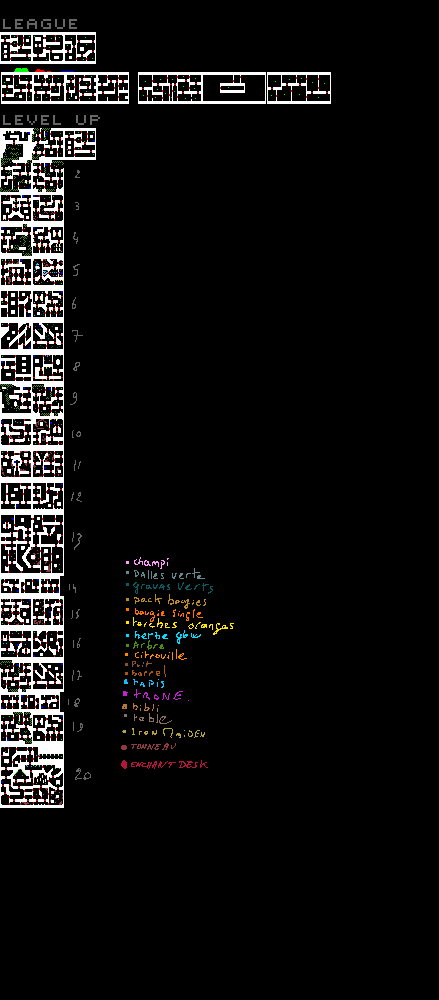 LEAGUE
LEVEL UP
2
3
4
5
6
7
8
9
10
11
12
13
14
15
16
17
18
19
20
champi
Dalles verte
gravas verts
pack bougies
bougie single
torches oranges
herbe glow
Arbre
citrouille
Puit
barrel
tapis
tRONE.
bibli
table
IRON MAIDEN
TONNEAU
ENCHANT DESK